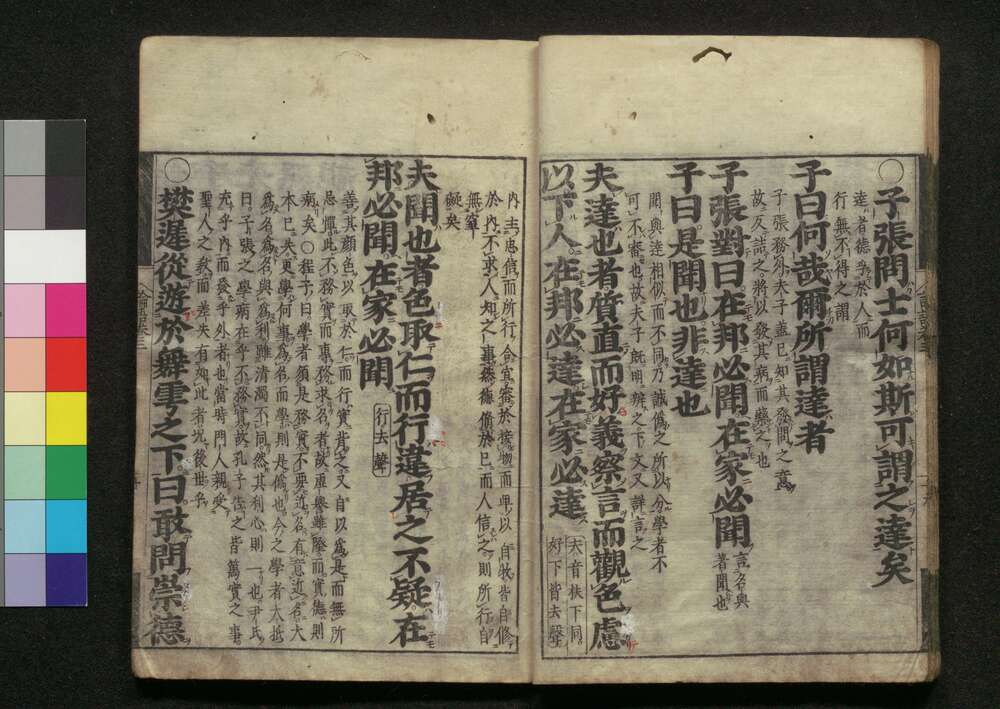 ○子張問士何如斯可謂之達矣
達者德孚於人而
行無不得之謂
子曰何哉爾所謂達者
子張務外夫子蓋已知其發問之意
故反詰之將以發其病而藥之也
子張對曰在邦必聞在家必聞
言名譽
著聞也
子曰是聞也非達也
聞與達相似而不同乃誠偽之所以分學者不
可不審也故夫子既明辨之下文又詳言之
夫達也者質直而好義察言而觀色慮
以下人在邦必達在家必達
夫音扶下同
好下皆去聲
內主忠信而所行合宜審於接物而卑以自牧皆自修
於內不求人知之事然德脩於已而人信之則所行自
無窒
礙矣
夫聞也者色取仁而行違居之不疑在
邦必聞在家必聞
行去聲
善其顏色以取於仁而行實背之又自以為是而無所
忌憚此不務實而專務求名者故虛譽雖隆而實德則
病矣○程子曰學者須是務實不要近名有意近名大
本已失更學何事為名而學則是偽也今之學者大抵
為名為名與為利雖清濁不同然其利心則一也尹氏
曰子張之學病在乎不務實故孔子告之皆篤實之事
充乎內而發乎外者也當時門人親受
聖人之教而差失有如此者況後世乎
○樊遲從遊於舞雩之下曰敢問崇德